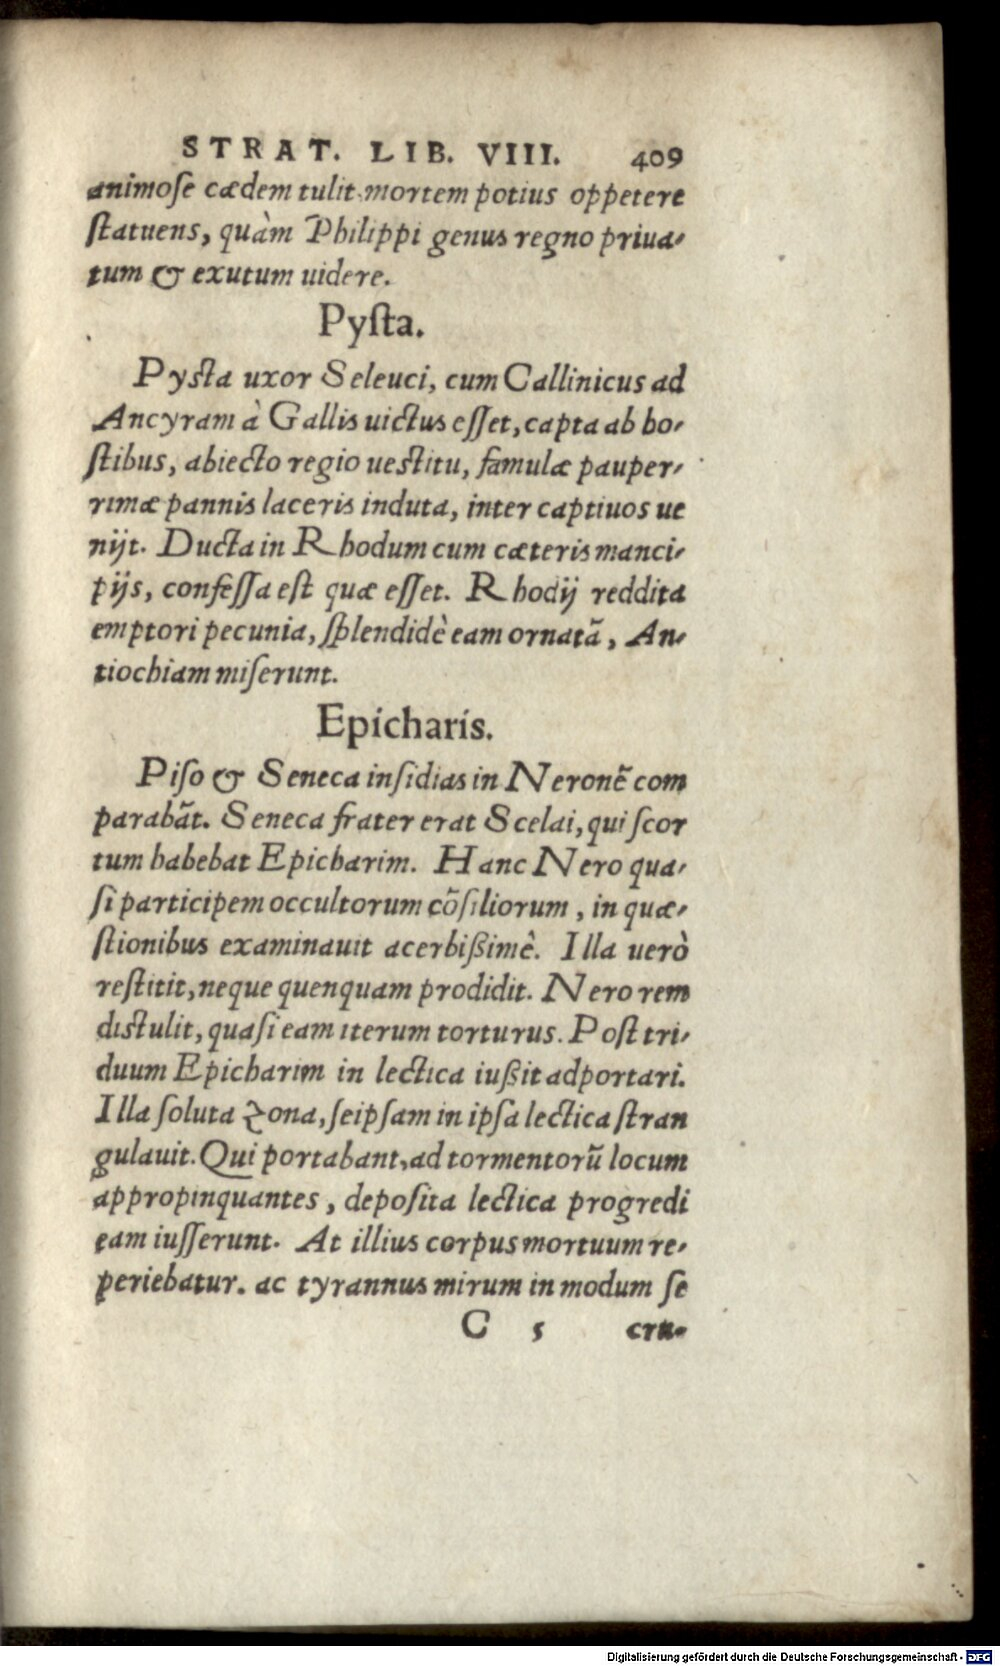 STRAT. LIB. VIII. 409
animoſe cædem tulit mortem potius oppetere
ſtatuens, quàm Philippi genus regno priua-
tum & exutum uidere.
Pyſta.
Pyſta uxor Seleuci, cum Callinicus ad
Ancyram à Gallis uictus eſſet, capta ab ho-
ſtibus, abiecto regio ueſtitu, famulæ pauper-
rimæ pannis laceris induta, inter captiuos ue
nijt. Ducta in Rhodum cum cæteris manci-
pijs, confeſſa eſt quæ eſſet. Rhodij reddita
emptori pecunia, ſplendidè eam ornatā, An-
tiochiam miſerunt.
Epicharis.
Piſo & Seneca inſidias in Neronē com
parabāt. Seneca frater erat Scelai, qui ſcor
tum habebat Epicharim. Hanc Nero qua-
ſi participem occultorum cōſiliorum, in quæ-
ſtionibus examinauit acerbißimè. Illa uerò
reſtitit, neque quenquam prodidit. Nero rem
diſtulit, quaſi eam iterum torturus. Poſt tri-
duum Epicharim in lectica iußit adportari.
Illa ſoluta zona, ſeipſam in ipſa lectica ſtran
gulauit. Qui portabant, ad tormentorū locum
appropinquantes, depoſita lectica progredi
eam iuſſerunt. At illius corpus mortuum re-
periebatur. ac tyrannus mirum in modum ſe
C 5 cru-
Digitalisierung gefördert durch die Deutsche Forschungsgemeinschaft - DFG